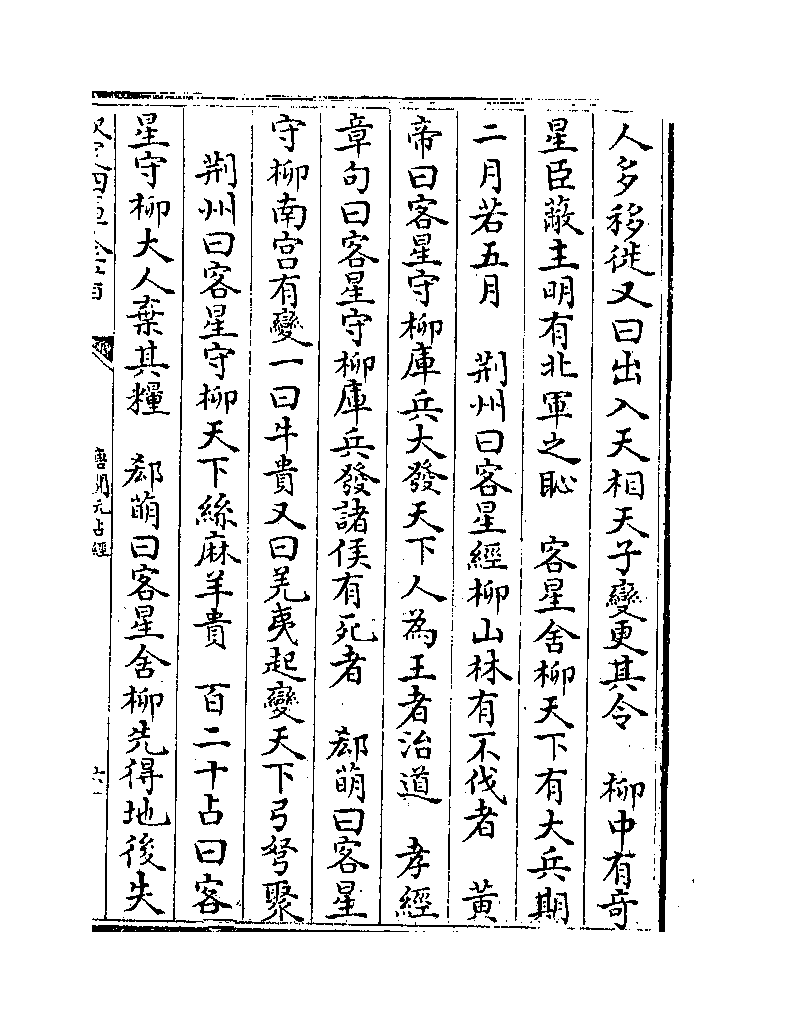 人多移徙又曰出入天相天子變更其令　柳中有奇
星臣蔽主明有北軍之恥　客星舍柳天下有大兵期
二月若五月　荆州曰客星經柳山林有不伐者　黄
帝曰客星守柳庫兵大發天下人為王者治道　孝經
章句曰客星守柳庫兵發諸侯有死者　郗萌曰客星
守柳南宫有變一曰牛貴又曰羌夷起變天下弓弩聚
荆州曰客星守柳天下絲麻羊貴　百二十占曰客
星守柳大人棄其糧　郗萌曰客星舍柳先得地後失
唐開元占經